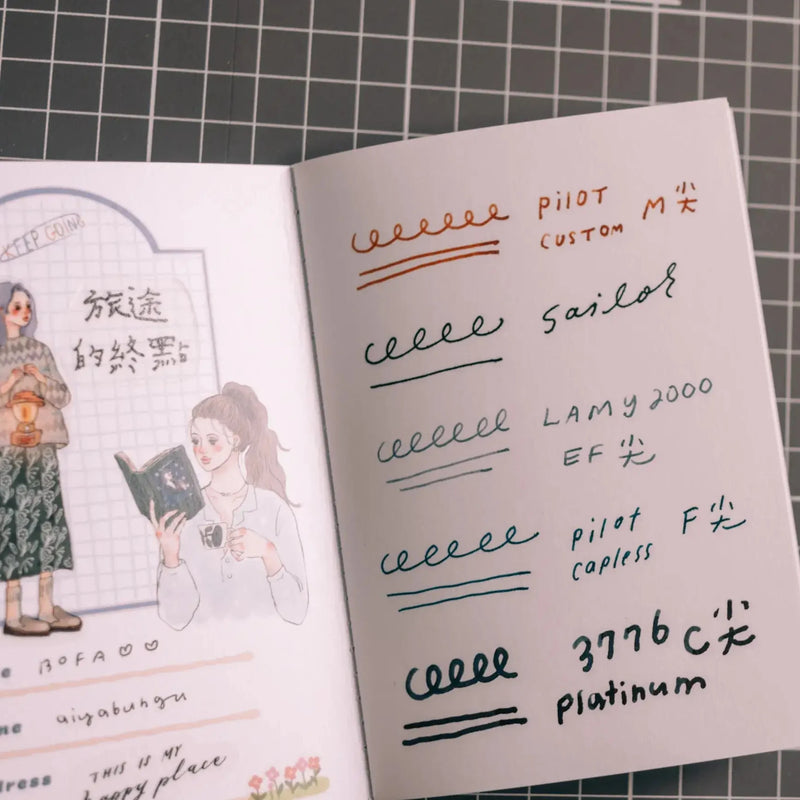 KEEP GOING
旅途
的終點
e BOFA ♡ ♡
me aiyabungu
dress THIS IS MY
happy place
PILOT M尖
CUSTOM
Sailor
LAMY 2000
EF 尖
pilot F尖
capless
3776 C尖
platinum